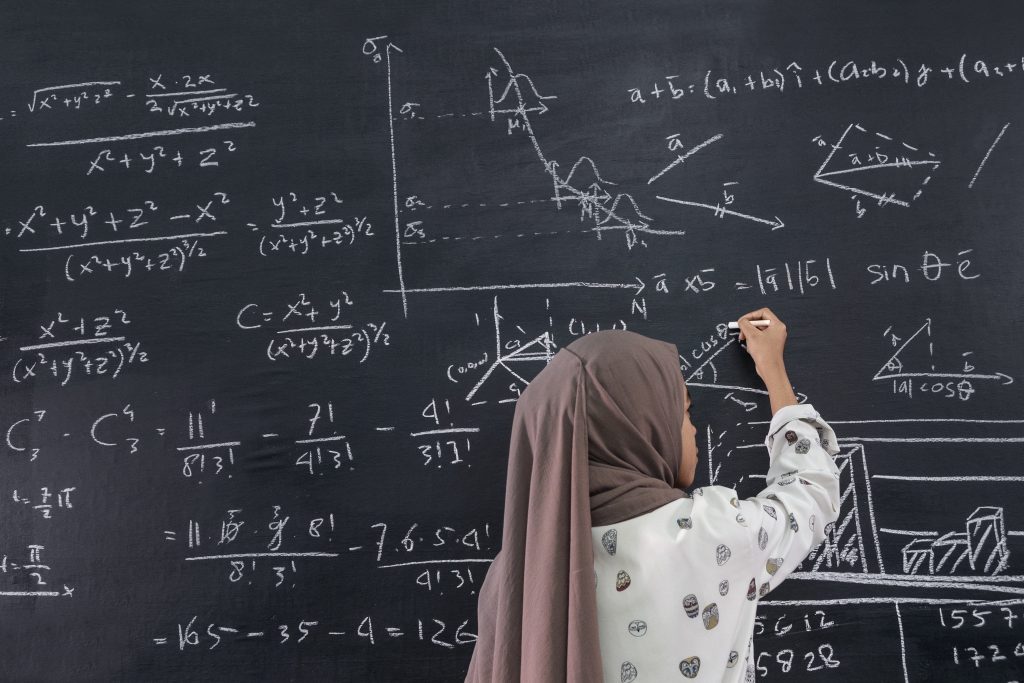 = √(x²+y²+z²) - (x·2x)/(2√(x²+y²+z²))
x²+y²+z²
x²+y²+z²-x² / (x²+y²+z²)^3/2 = y²+z² / (x²+y²+z²)^3/2
x²+z² / (x²+y²+z²)^3/2
C = x²+y² / (x²+y²+z²)^3/2
C⁷₃ - C⁴₃ = 11! / 8!3! - 7! / 4!3! - 4! / 3!1!
t = 7/2 π
= 11·10·9·8! / 8! 3! - 7·6·5·4! / 4!3!
π/2
x
= 165 - 35 - 4 = 126
σa
σ₁
μ₁
N
a̅+b̅ = (a₁+b₁)î + (a₂b₂)
a̅
b̅
a̅
a̅+b̅
b̅
a̅ x b̅ = |a̅||b̅| sin θ e̅
(0,0,0)
cos
b̅
θ
|a| cosθ
5612
5828
1557
172